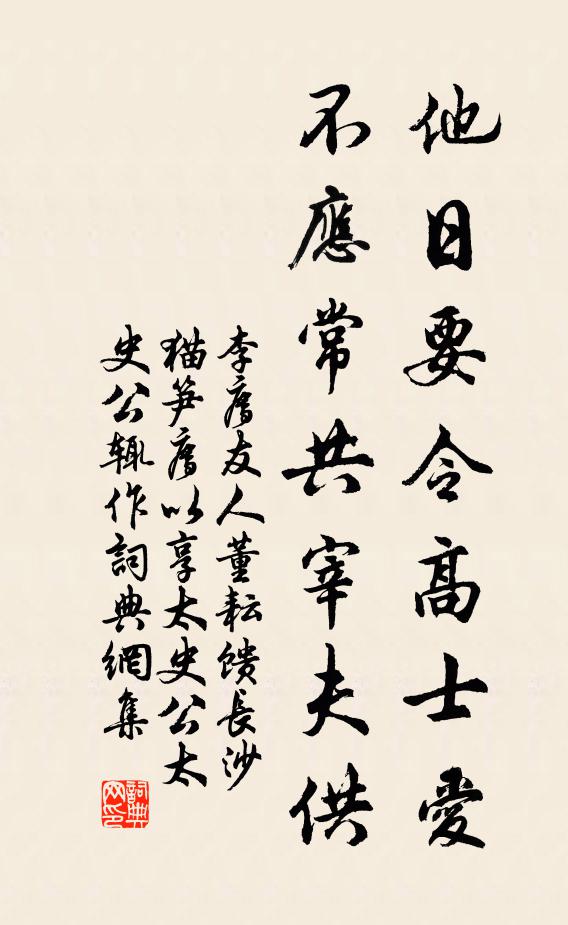 他日要令高士愛
不應常共宰夫供
李廌友人董耘饋長沙
猫笋廌以享太史公太
史公輒作詞典網集
詞典
网印